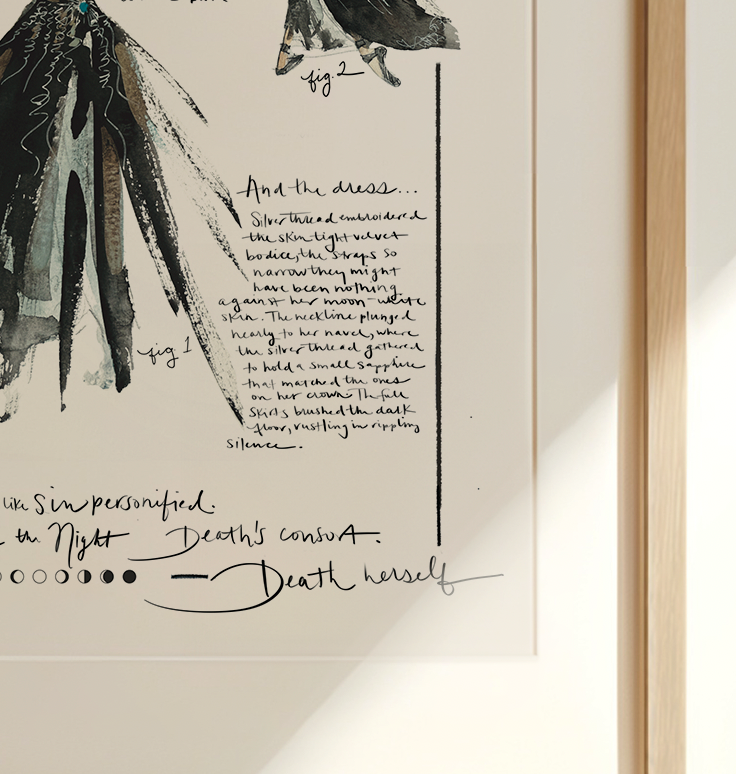 fig. 2
And the dress...
Silver thread embroidered
the skin tight velvet
bodice, the straps so
narrow they might
have been nothing
against her moon-white
skin. The neckline plunged
nearly to her navel, where
the silver thread gathered
to hold a small sapphire
that matched the ones
on her crown. The full
skirts brushed the dark
floor, rustling in rippling
silence.
fig 1
like Sin personified.
the Night Death's consort.
— Death herself